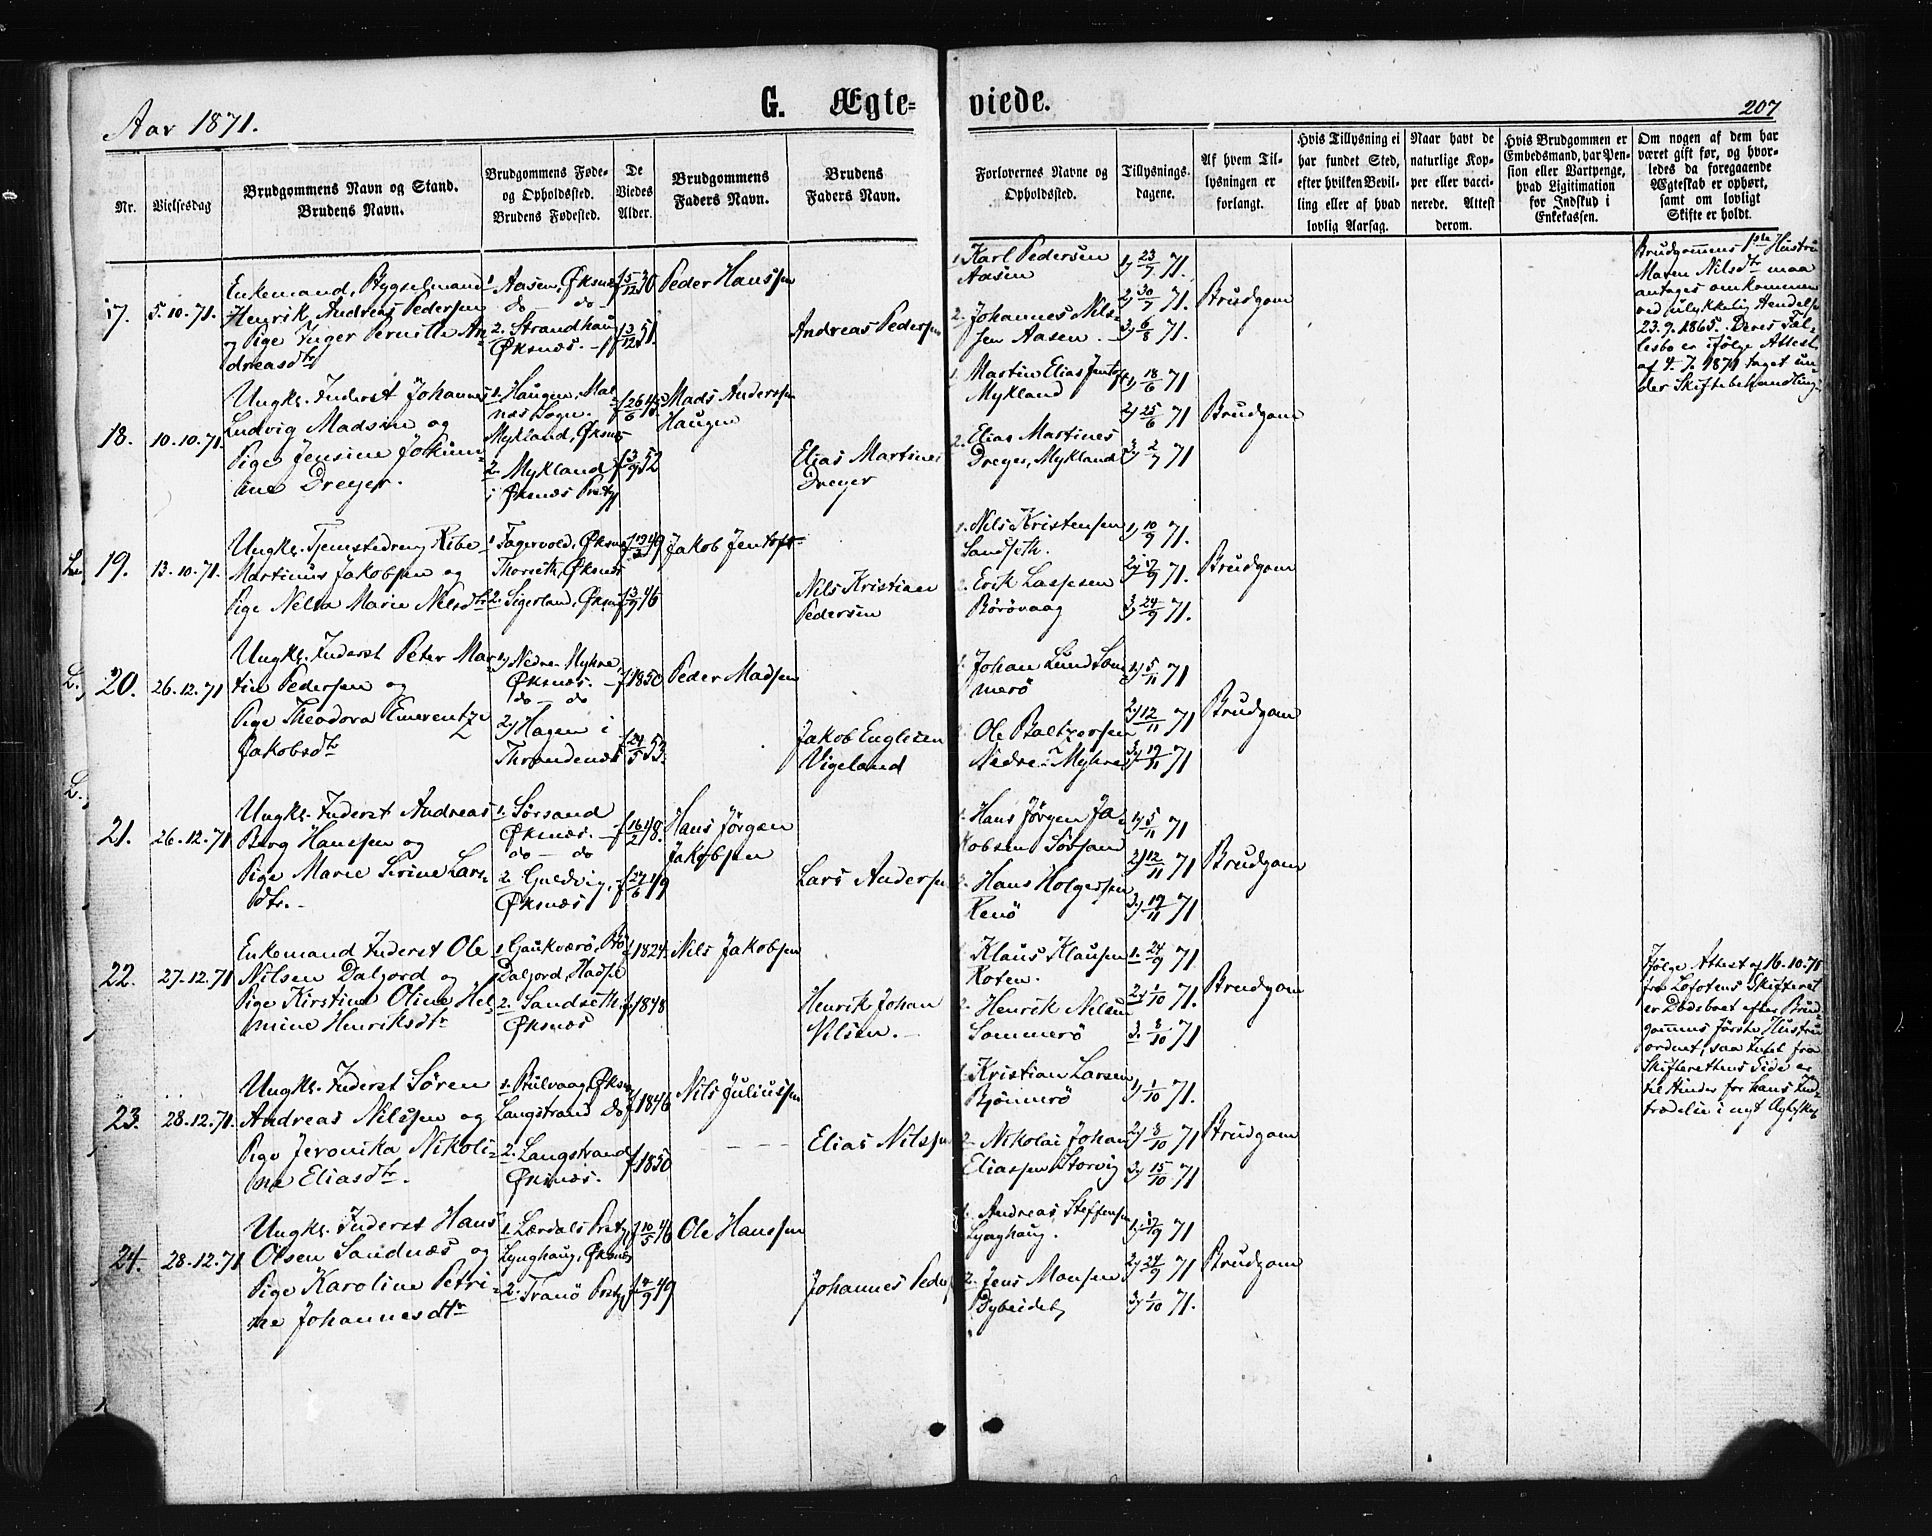 Aar 1871.
G. Ægte-
viede.
207
Nr.
Vielsesdag
Brudgommens Navn og Stand.
Brudens Navn.
Brudgommens Føde-
og Opholdssted.
Brudens Fødested.
De
Viedes
Alder.
Brudgommens
Faders Navn.
Brudens
Faders Navn.
Forlovernes Navne og
Opholdssted.
Tillysnings-
dagene.
Af hvem Til-
lysningen er
forlangt.
Hvis Tillysning ei
har fundet Sted,
efter hvilken Bevil-
ling eller af hvad
lovlig Aarsag.
Naar havt de
naturlige Kop-
per eller vacci-
nerede. Attest
derom.
Hvis Brudgommen er
Embedsmand, har Pen-
sion eller Vartpenge,
hvad Ligitimation
for Indskud i
Enkekassen.
Om nogen af dem har
været gift før, og hvor-
ledes da foregaaende
Ægteskab er ophørt,
samt om lovligt
Skifte er holdt.
17. 5.10.71.
Enkemand, Bygselmand
Henrik Andreas Pedersen
og Pige Inger Pernille An-
dreasdtr
1. Aasen, Øksnæs
do — do
2. Strandhaug
Øksnæs.
f 5/12 30
f 13/12 51.
Peder Hanssen
Andreas Pedersen
1. Karl Pedersen
Aasen
2. Johannes Nils-
sen Aasen.
1) 23/7 71.
2) 30/7 71.
3) 6/8 71.
Brudgom
Brudgommens 1ste Hustru
Maren Nilsdtr maa
antages omkommen
ved ulykkelig Hendelse
23.9.1865. Deres Fæl-
lesbo er ifølge Attest
af 4.7.1871 taget un-
der Skiftebehandling.
18. 10.10.71.
Ungk. Inderst Johannes
Ludvig Madsen og
Pige Jensine Jokum-
ine Dreyer.
1. Haugen, Mal-
næs Sogn.
Mykland, Øksnæs
2. Mykland
i Øksnæs Prstgj
f 26/6 45
f 13/9 52
Mads Anderssen
Haugen
Elias Martines
Dreyer
1. Martin Elias Jentoft
Mykland
2. Elias Martines
Dreyer, Mykland
1) 18/6 71
2) 25/6 71
3) 2/7 71
Brudgom
L. 19. 13.10.71.
Ungk. Tjenstedreng Ribe
Martinus Jakobsen og
Pige Nelsa Marie Nilsdtr
1. Fagervold, Øksnæs
Thorseth, Øksnæs
2. Sigerland, Øksnæs
Jakob Jentoft
Nils Kristian
Pedersen
1. Nils Kristensen
Sandseth.
2. Erik Lassesen
Börövaag
1) 10/9 71.
2) 17/9 71.
3) 24/9 71.
Brudgom
L. 20. 26.12.71
Ungk. Inderst Peter Mar-
tin Pedersen og
Pige Theodora Emerentze
Jakobsdtr
1) Nedre-Myhre,
Øksnæs.
do — do
2) Hagen i
Throndenæs
f 1850
f 24/5 53.
Peder Madsen
Jakob Englesen
Vigeland
1. Johan Lund Som-
merö
2. Ole Baltzersen
Nedre-Myhre
1) 5/11 71
2) 12/11 71
3) 19/11 71
Brudgom
L.
21. 26.12.71
Ungk. Inderst Andreas
Berg Hanssen og
Pige Marie Serine Lars-
dtr.
1. Sörsand
Øksnæs.
do — do
2. Guldvig,
Øksnæs
f 16/2 48.
f 27/6 49
Hans Jörgen
Jakobsen
Lars Andersen
1. Hans Jörgen Ja-
kobsen Sörsand
2. Hans Holgersen
Renö
1) 5/11 71
2) 12/11 71
3) 19/11 71
Brudgom
22. 27.12.71
Enkemand Inderst Ole
Nilsen Daljord og
Pige Kirstine Oline Hel-
mine Henriksdtr
1. Gaukværö, Bö
Dalfjord, Hadsel
2. Sandseth
Øksnæs
f 1824.
f. 1848
Nils Jakobsen
Henrik Johan
Nilsen.
1. Klaus Klausen
Roten.
2. Henrik Nilsen
Sommerö
1. 24/9 71
2. 1/10 71.
3. 8/10 71
Brudgom
Ifølge Attest af 16.10.71
fra Lofotens Skifteret
er Dödsboet efter Brud-
gommens förste Hustru
ordnet, saa Intet fra
Skifterettens Side er
til Hinder for hans Ind-
trædelse i nyt Ægteskab
23. 28.12.71.
Ungk. Inderst Sören
Andreas Nilssen og
Pige Jeronika Nikoli-
ne Eliasdtr.
Langstrand do
2. Langstrand
Øksnæs.
f 1846
f 1850
Nils Juliussen
Elias Nilssen
1. Kristian Larsen
2. Nikolai Johan
Eliassen Storvig
1) 1/10 71.
2) 8/10 71
3) 15/10 71
Brudgom
24. 28.12.71
Ungk. Inderst Hans
Olsen Sandnæs og
Pige Karoline Petri-
ne Johannesdtr
1. Lærdals Prstgj
Lynghaug, Øksnæs
2. Tranö Prstgj
f 10/5 46
f 4/9 49
Ole Hanssen
Johannes Peders
1. Andreas Steffensen
Lynghaug.
2. Jens Monsen
1) 17/9 71
2) 24/9 71
3) 1/10 71.
Brudgom